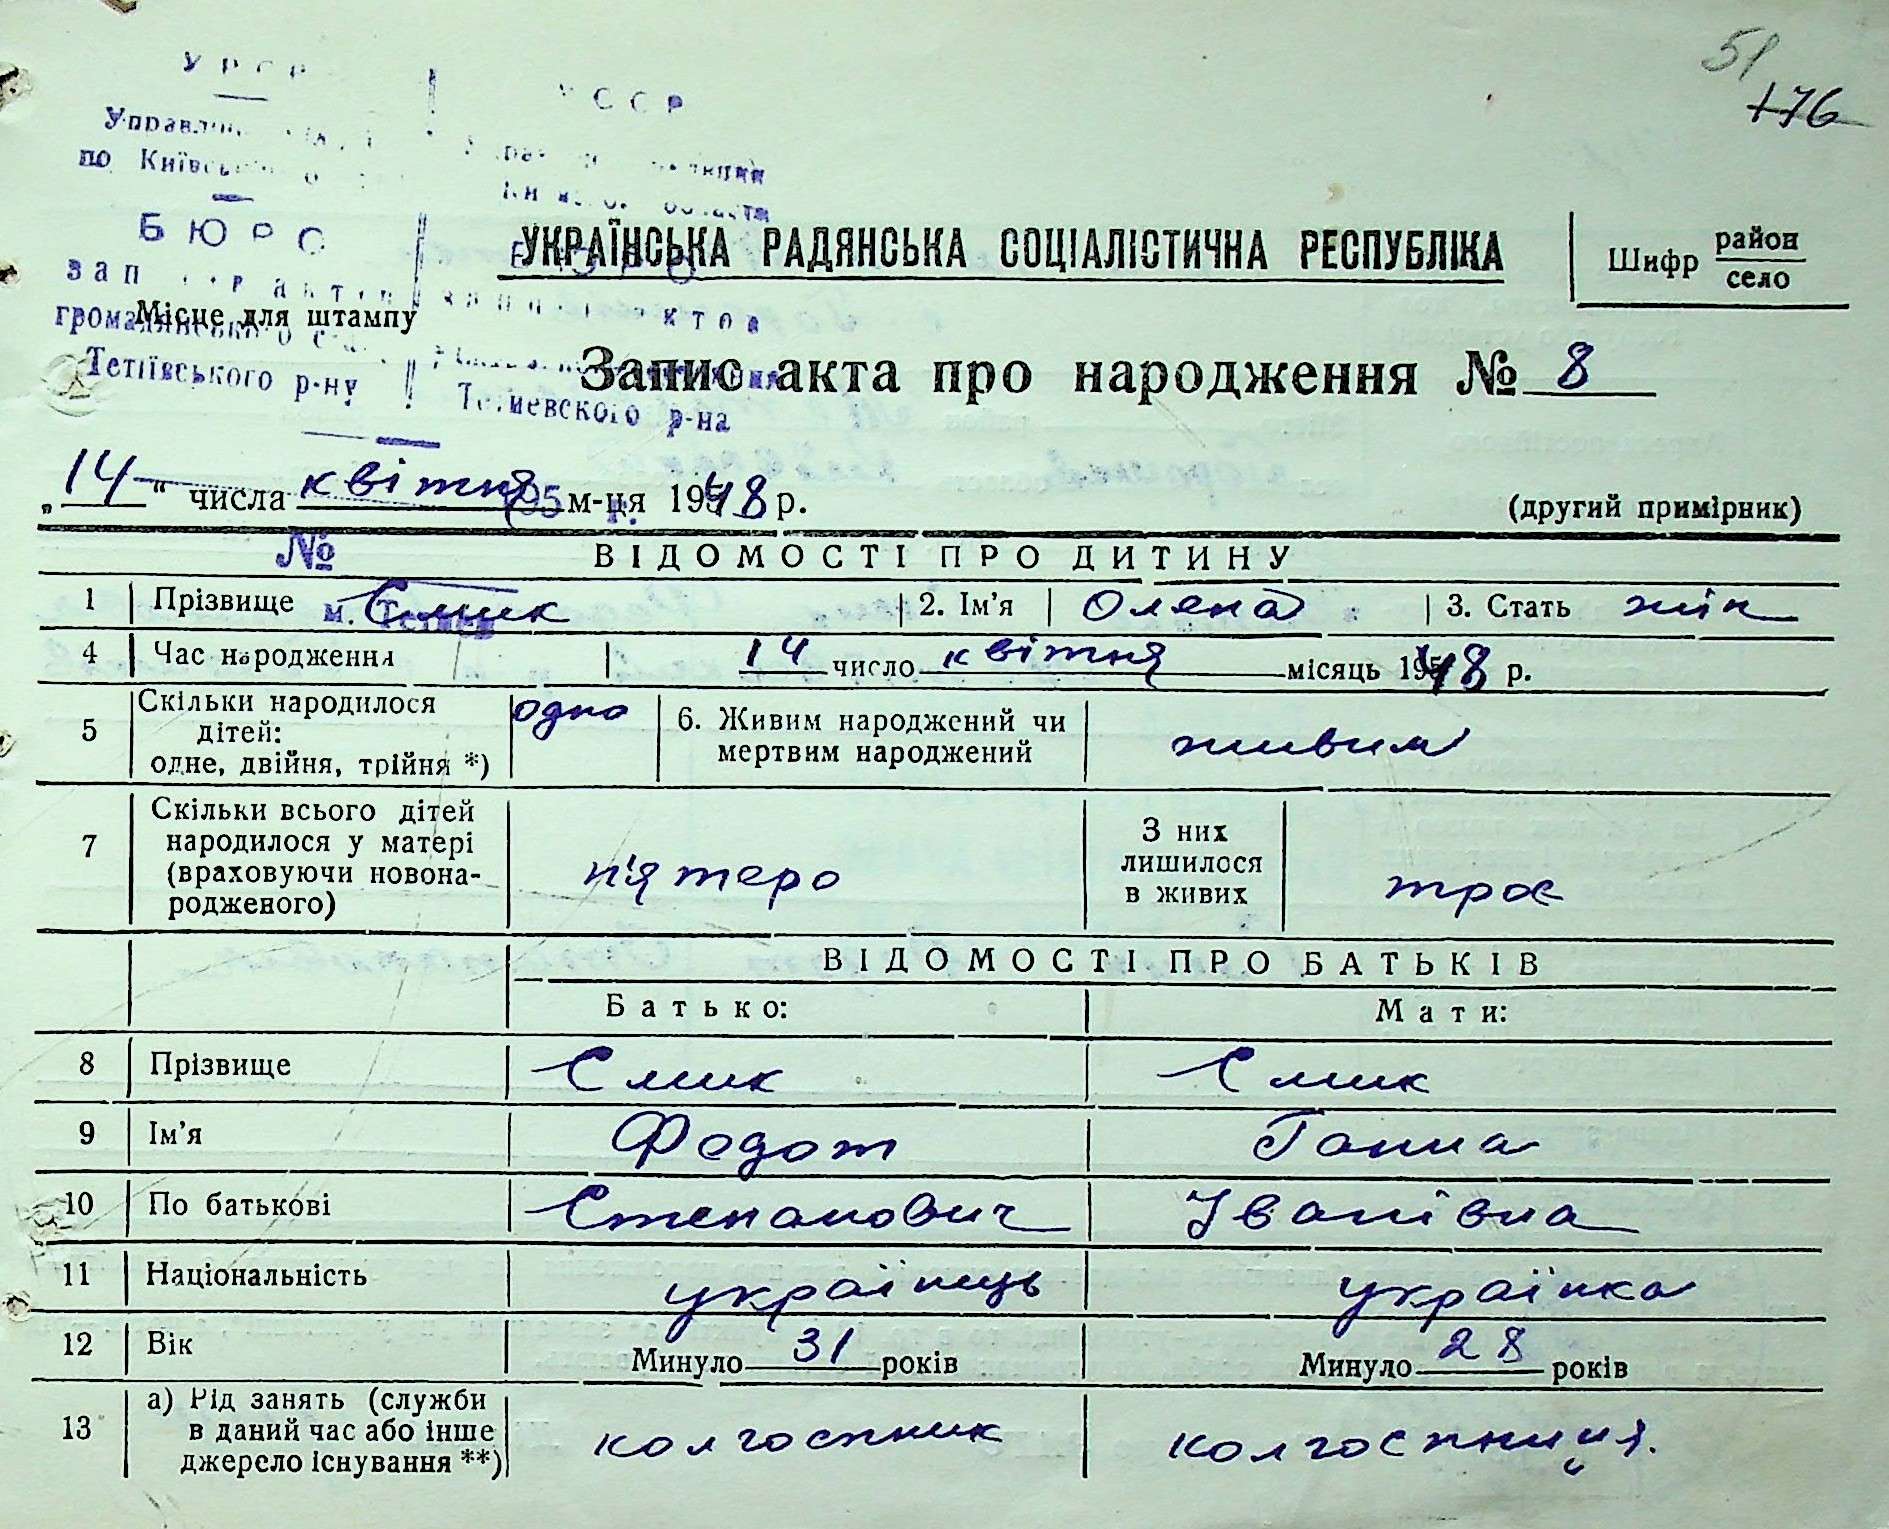 51
176
У Р С Р
С С Р
по
БЮРО
Тетіївського р-ну
р-на
УКРАЇНСЬКА РАДЯНСЬКА СОЦІАЛІСТИЧНА РЕСПУБЛІКА
Шифр район
село
Місце для штампу
Запис акта про народження № 8
„14“ числа квітня м-ця 1948 р.
(другий примірник)
№
ВІДОМОСТІ ПРО ДИТИНУ
1 Прізвище Смик 2. Ім'я Олена 3. Стать жін
4 Час народження 14 число квітня місяць 1948 р.
5 Скільки народилося дітей: одне, двійня, трійня *) одно 6. Живим народжений чи мертвим народжений живим
7 Скільки всього дітей народилося у матері (враховуючи новонародженого) п'ятеро З них лишилося в живих троє
ВІДОМОСТІ ПРО БАТЬКІВ
Батько: Мати:
8 Прізвище Смик Смик
9 Ім'я Федот Ганна
10 По батькові Степанович Іванівна
11 Національність українець українка
12 Вік Минуло 31 років Минуло 28 років
13 а) Рід занять (служби в даний час або інше джерело існування **) колгоспник колгоспниця.